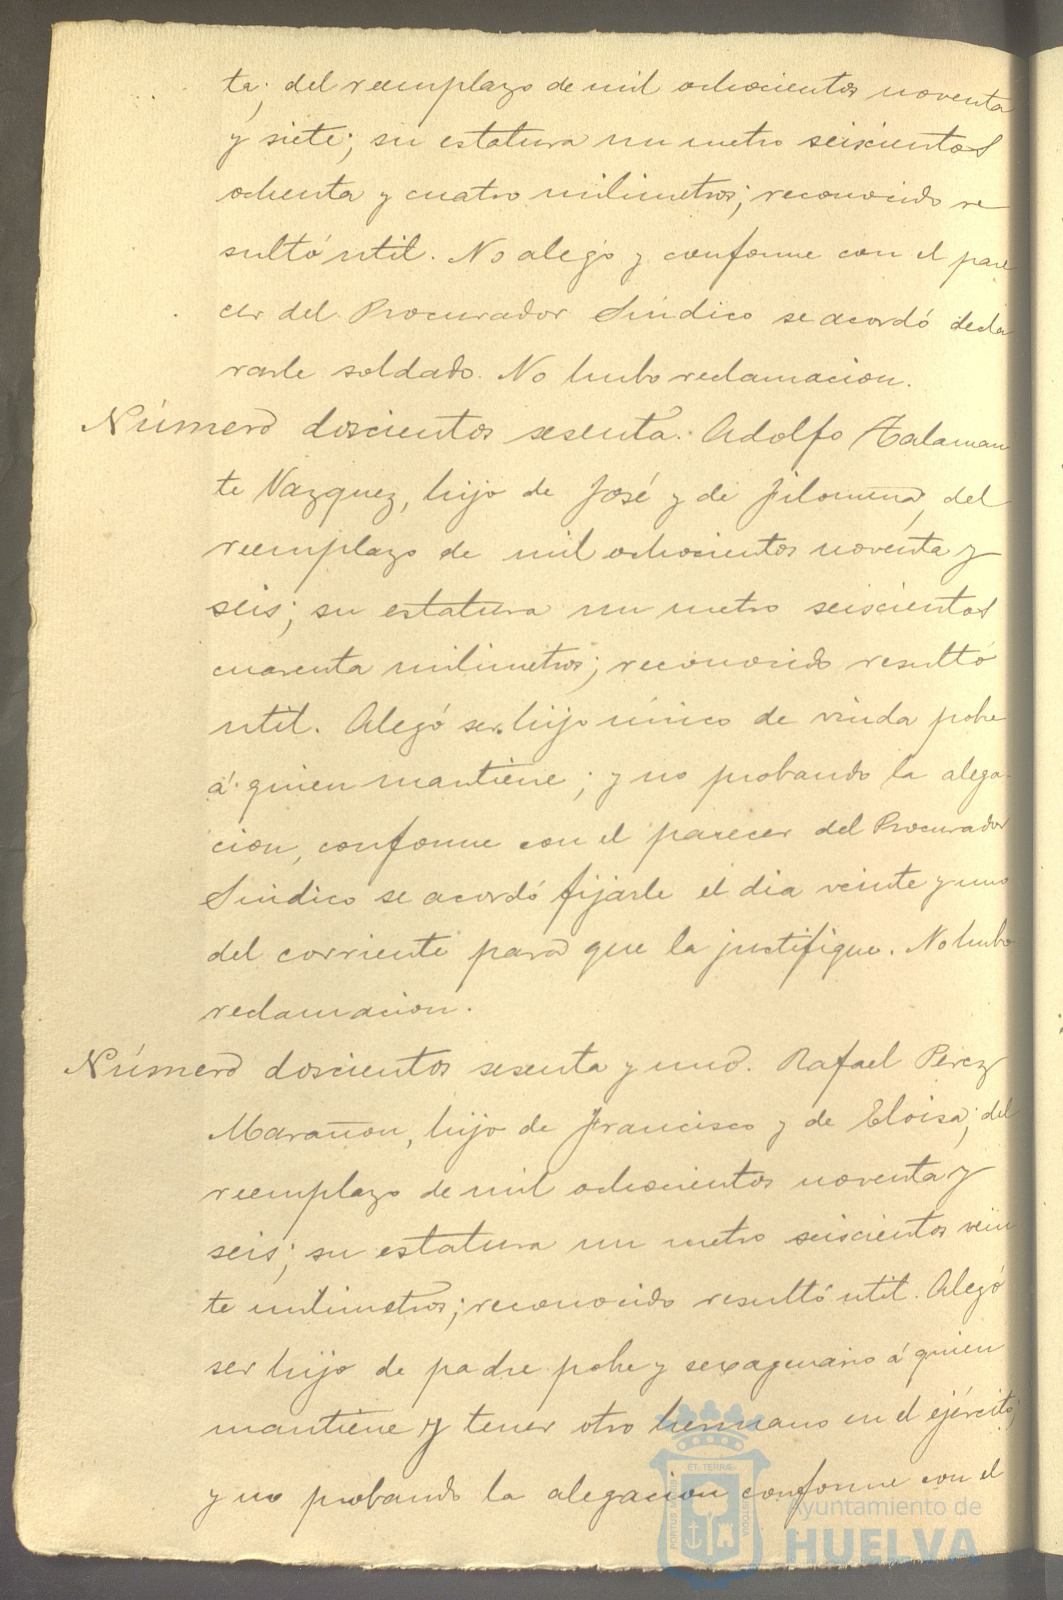 ta; del reemplazo de mil ochocientos noventa
y siete; su estatura un metro seiscientos
ochenta y cuatro milimetros; reconocido re
sultó util. No alegó y conforme con el pare
cer del Procurador Síndico se acordó decla
rarle soldado. No hubo reclamacion.
Número doscientos sesenta. Adolfo Talaman
te Vazquez, hijo de José y de Filomena, del
reemplazo de mil ochocientos noventa y
seis; su estatura un metro seiscientos
cuarenta milimetros; reconocido resultó
util. Alegó ser hijo único de viuda pobre
á quien mantiene; y no probando la alega-
cion, conforme con el parecer del Procurador
Síndico se acordó fijarle el dia veinte y uno
del corriente para que la justifique. No hubo
reclamacion.
Número doscientos sesenta y uno. Rafael Perez
Marañon, hijo de Francisco y de Eloisa; del
reemplazo de mil ochocientos noventa y
seis; su estatura un metro seiscientos vein
te milimetros; reconocido resultó util. Alegó
ser hijo de padre pobre y sexagenario á quien
mantiene y tener otro hermano en el ejército;
y no probando la alegacion conforme con el
PORTUS MARIS ET TERRÆ CUSTODIA
Ayuntamiento de
HUELVA